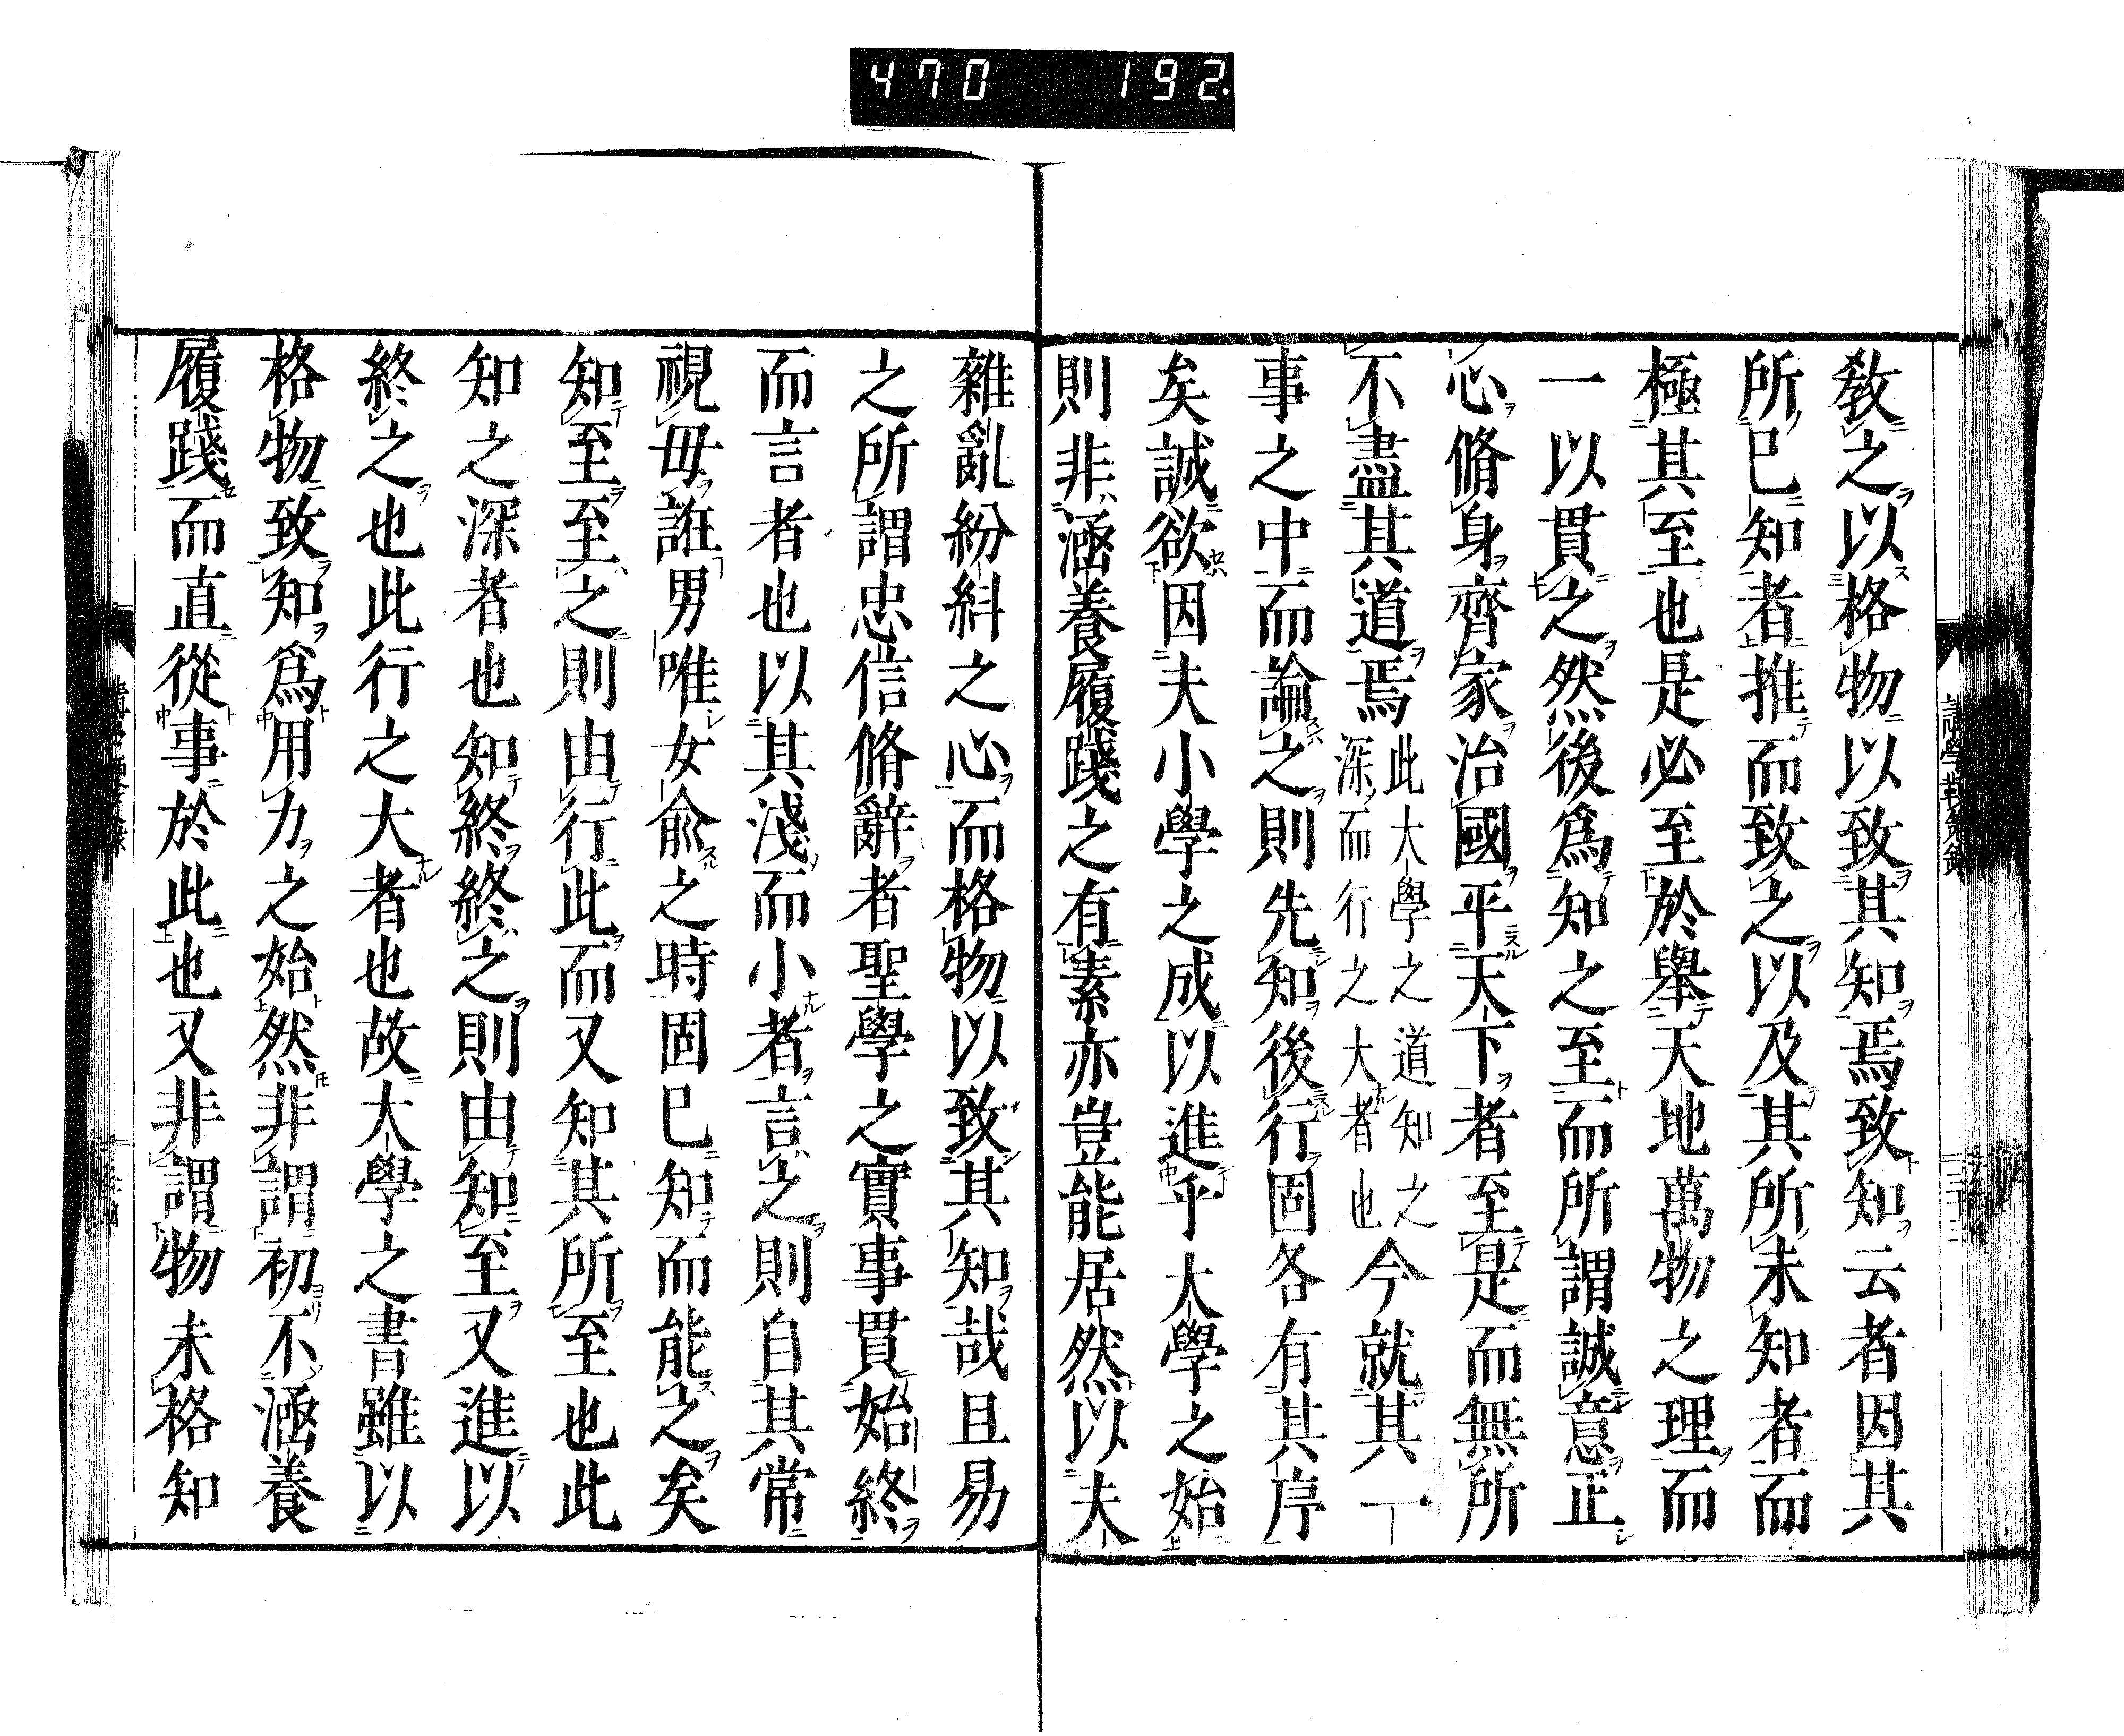 470 192.
敎之以格物以致其知焉致知云者因其
所已知者推而致之以及其所未知者而
極其至也是必至於擧天地萬物之理而
一以貫之然後爲知之至而所謂誠意正
心脩身齊家治國平天下者至是而無所
不盡其道焉此大學之道知之深而行之大者也今就其一
事之中而論之則先知後行固各有其序
矣誠欲因夫小學之成以進乎大學之始
則非涵養履踐之有素亦豈能居然以夫
雜亂紛糾之心而格物以致其知哉且易
之所謂忠信脩辭者聖學之實事貫始終
而言者也以其淺而小者言之則自其常
視毋誑男唯女兪之時固已知而能之矣
知至至之則由行此而又知其所至也此
知之深者也知終終之則由知至又進以
終之也此行之大者也故大學之書雖以
格物致知爲用力之始然非謂初不涵養
履踐而直從事於此也又非謂物未格知